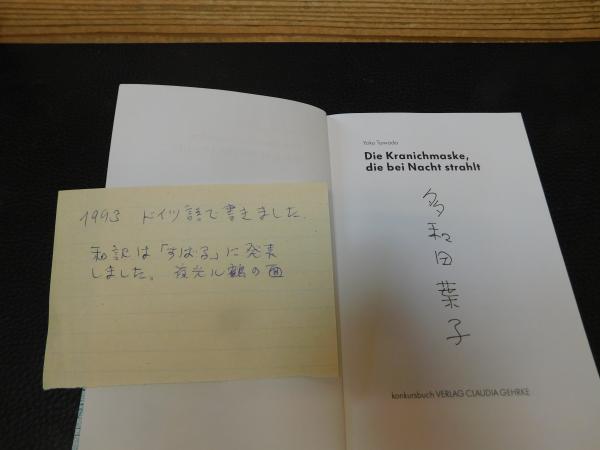 1993 ドイツ語で書きました.
和訳は「すばる」に発表
しました。夜光ル鶴の面
Yoko Tawada
Die Kranichmaske,
die bei Nacht strahlt
多和田葉子
konkursbuch VERLAG CLAUDIA GEHRKE